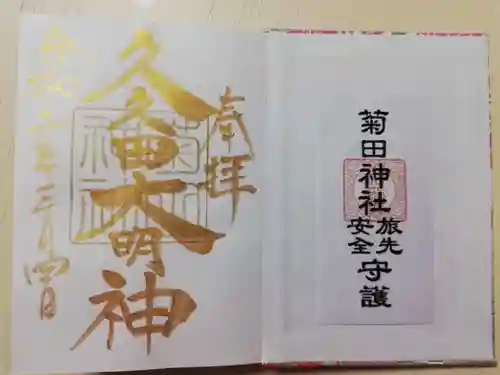 奉拝
久久田大明神
令和二年三月四日
菊田神社
旅先安全
守護